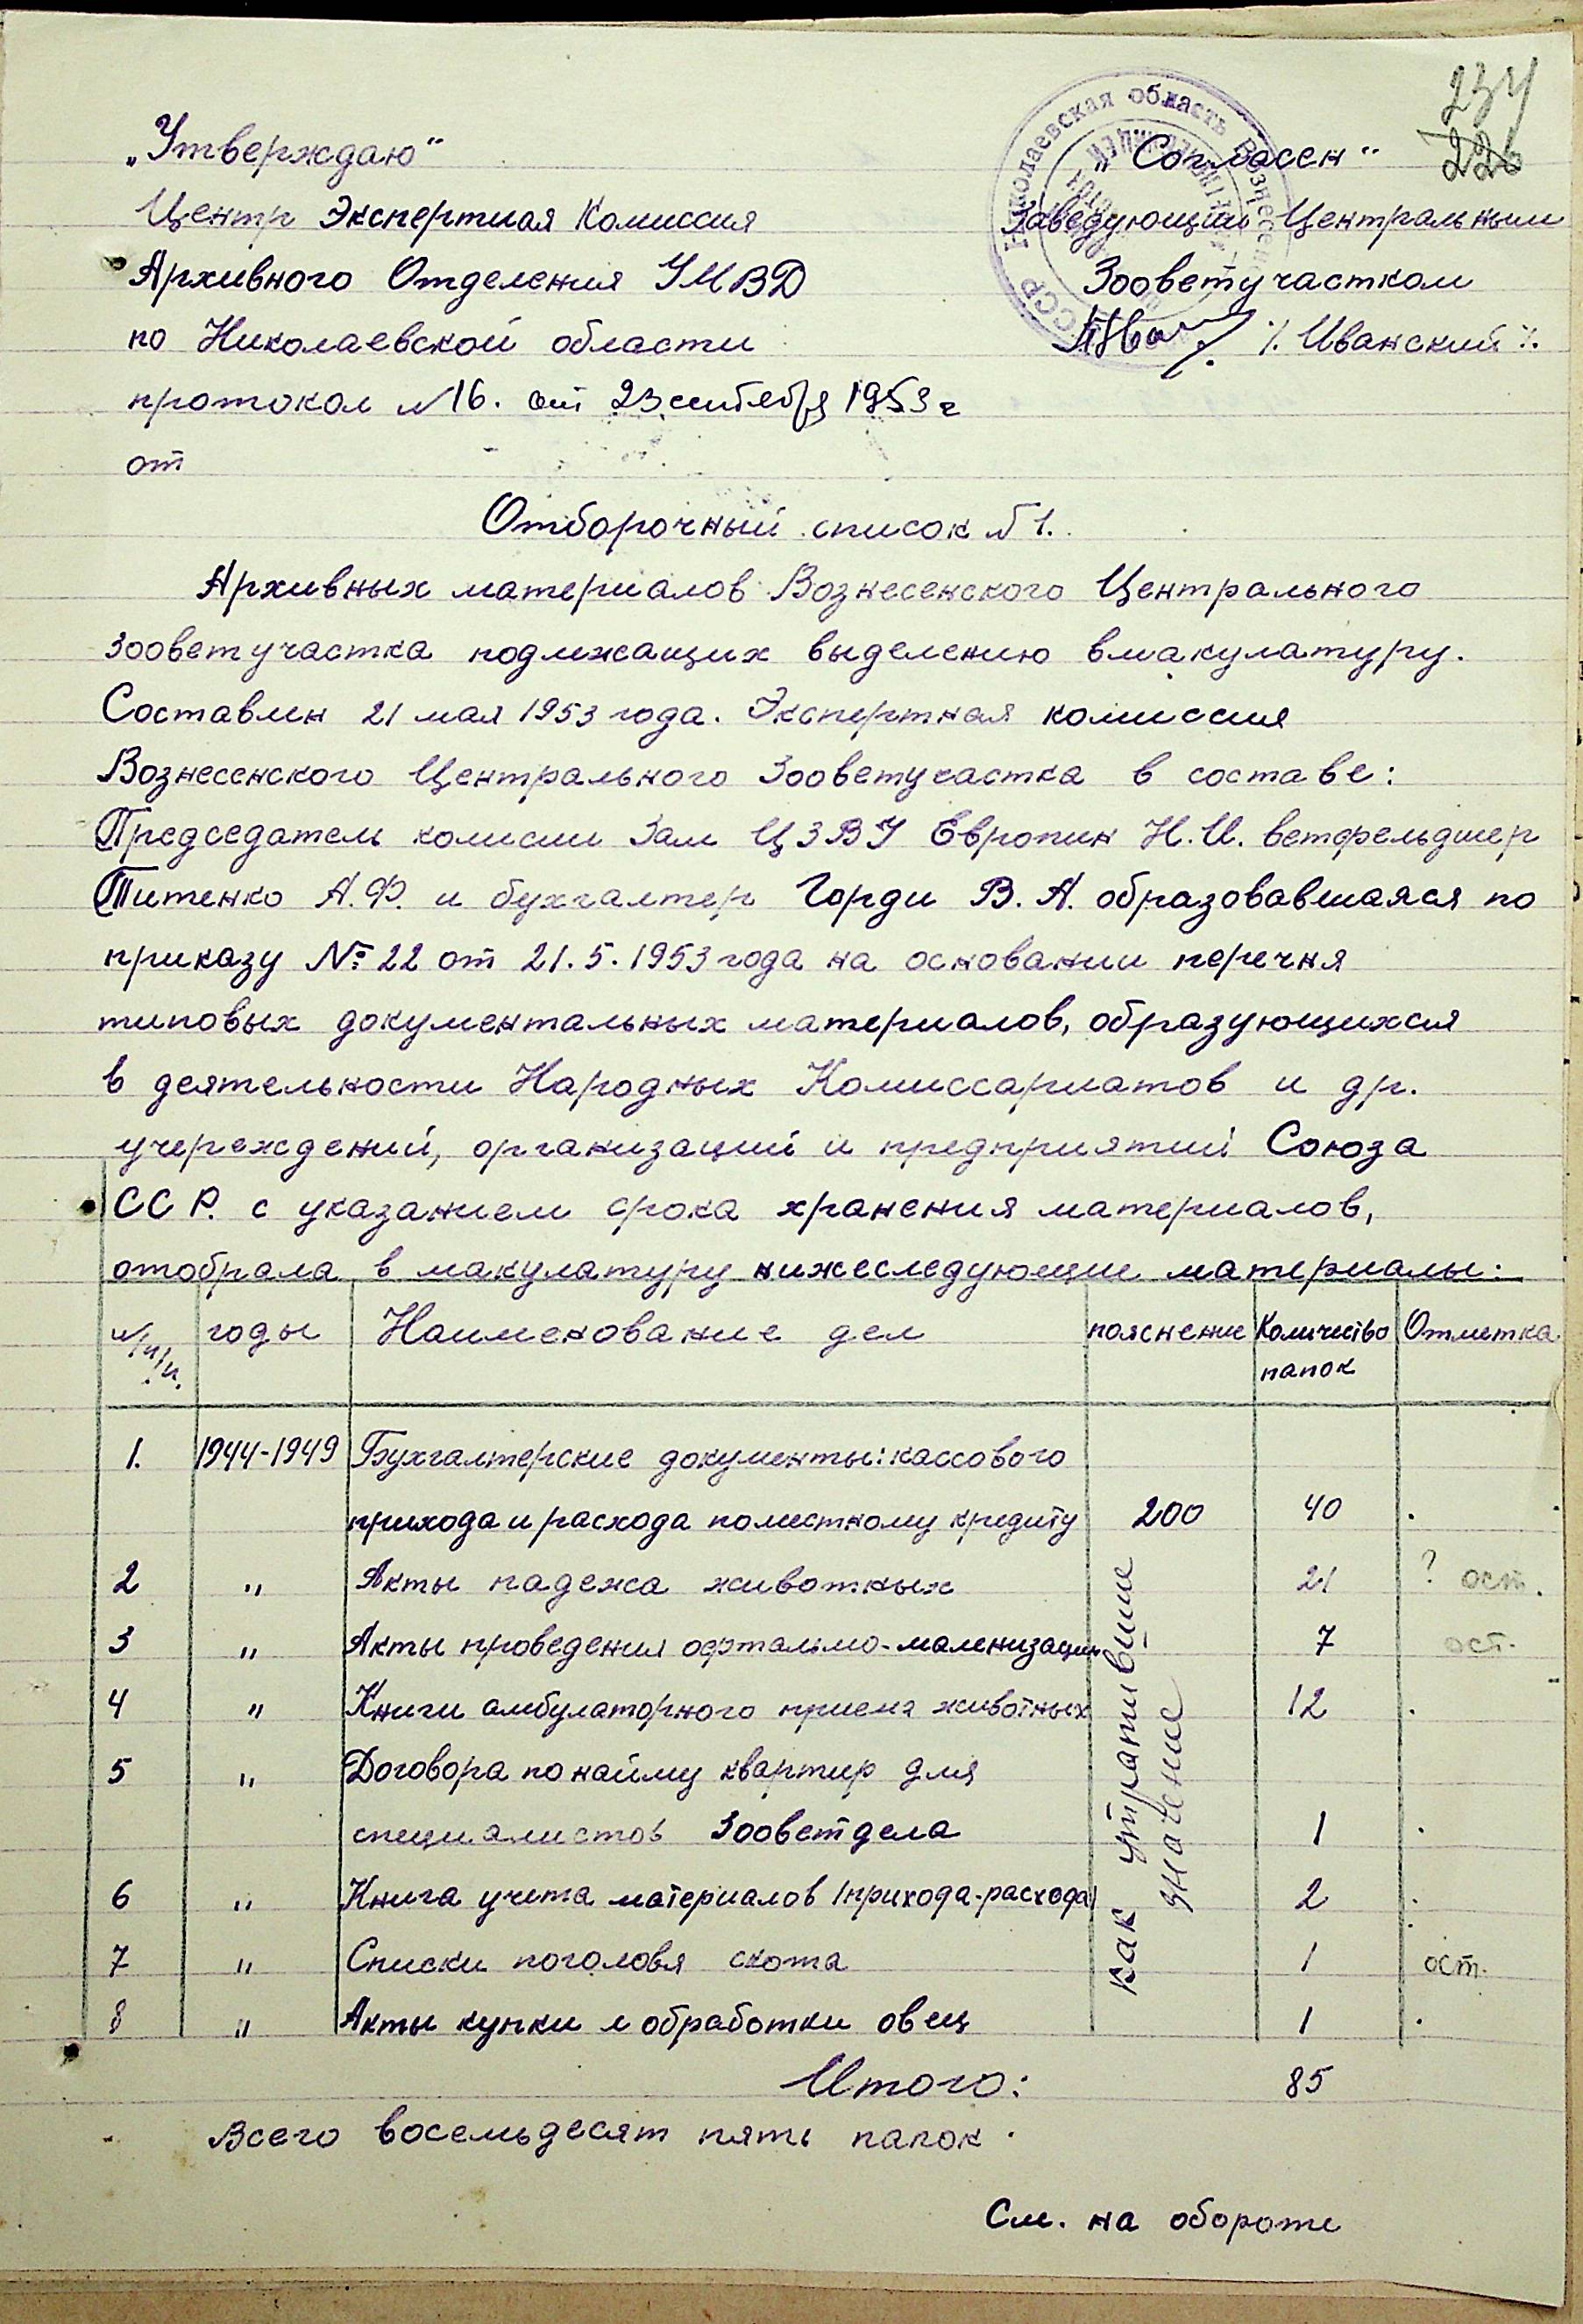 234
226
„Утверждаю“
Центр Экспертная Комиссия
Архивного Отделения УМВД
по Николаевской области
протокол №16. от 23 сентября 1953 г
от
„Согласен“
Заведующий Центральным
Зооветучастком
/. Иванский /.
ССР Николаевская область Вознесен
Отборочный список №1.
Архивных материалов Вознесенского Центрального
зооветучастка подлежащих выделению вмакулатуру.
Составлен 21 мая 1953 года. Экспертная комиссия
Вознесенского Центрального Зооветучастка в составе:
Председатель комисии Зам ЦЗВУ Европин Н.И. ветфельдшер
Титенко А.Ф. и бухгалтер Горди В.А. образовавшаяся по
приказу № 22 от 21.5.1953 года на основании перечня
типовых документальных материалов, образующихся
в деятельности Народных Комиссариатов и др.
учереждений, организаций и предприятий Союза
ССР. с указанием срока хранения материалов,
отобрала в макулатуру нижеследующие материалы:
№/п/п. годы Наименование дел пояснение Количество папок Отметка
1. 1944-1949 Бухгалтерские документы: кассового
прихода и расхода поместному кредиту 200 40 .
2 " Акты падежа животных 21 ? ост.
3 " Акты проведения офтальмо-маленизации 7 ост.
4 " Книги амбулаторного приема животных 12 .
5 " Договора по найму квартир для
специалистов Зооветдела 1 .
6 " Книга учета материалов /прихода-расхода/ 2 .
7 " Списки поголовя скота 1 ост.
8 " Акты купки и обработки овец 1 .
как утратившие
значение
Итого: 85
Всего восемьдесят пять папок.
См. на обороте